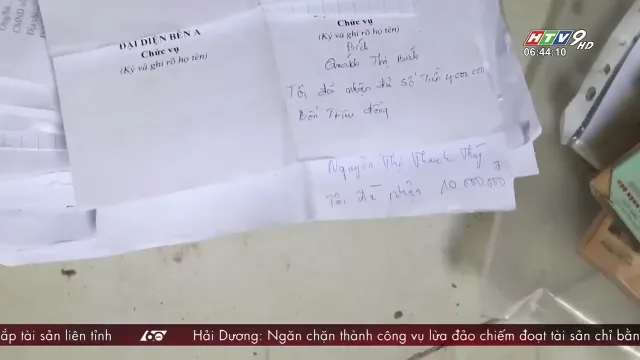 HTV9 HD
06:44:10
CMND số
ĐẠI DIỆN BÊN A
Chức vụ
(Ký và ghi rõ họ tên)
Chức vụ
(Ký và ghi rõ họ tên)
Bích
Thị Bích
Tôi đã nhận đủ số tiền 4000.000
Bốn Triệu đồng
Nguyễn Thị Thanh Thúy
Tôi đã nhận 10 000.000 đ
ắp tài sản liên tỉnh
60
Hải Dương: Ngăn chặn thành công vụ lừa đảo chiếm đoạt tài sản chỉ bằn